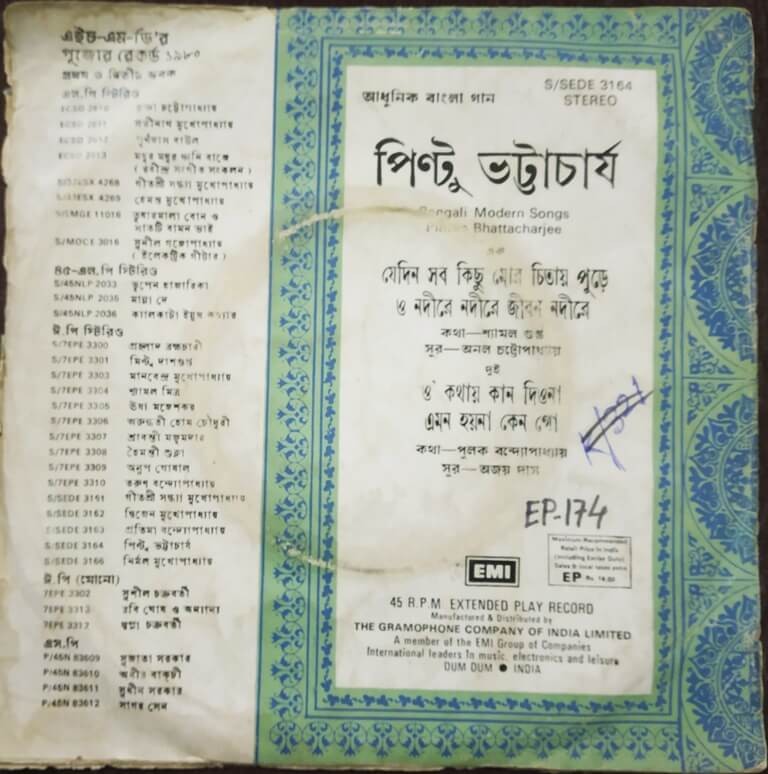 এইচ-এম-ভি'র
পূজোর রেকর্ড ১৯৮০
প্রথম ও দ্বিতীয় স্তবক
এল.পি স্টিরিও
চট্টোপাধ্যায়
মুখোপাধ্যায়
বাউল
মধুর মধুর ধ্বনি বাজে
(রবীন্দ্র সংগীত সংকলন)
4268 গীতশ্রী সন্ধ্যা মুখোপাধ্যায়
4269 হেমন্ত মুখোপাধ্যায়
11016 তুষারমালা বোন ও
সাতটি বামন ভাই
S/MOCE 3016 সুনীল গঙ্গোপাধ্যায়
(ইলেকট্রিক গীটার)
৪৫-এল.পি স্টিরিও
S/45NLP 2033 ভূপেন হাজারিকা
S/45NLP 2035 মান্না দে
S/45NLP 2036 ক্যালকাটা ইয়ুথ কয়্যার
ই.পি স্টিরিও
S/7EPE 3300 প্রহ্লাদ ব্রহ্মচারী
S/7EPE 3301 মিন্টু দাশগুপ্ত
S/7EPE 3303 মানবেন্দ্র মুখোপাধ্যায়
S/7EPE 3304 শ্যামল মিত্র
S/7EPE 3305 ঊষা মঙ্গেশকর
S/7EPE 3306 অরুন্ধতী হোম চৌধুরী
S/7EPE 3307 শ্রাবন্তী মজুমদার
S/7EPE 3308 হৈমন্তী শুক্লা
S/7EPE 3309 অনুপ ঘোষাল
S/7EPE 3310 তরুণ বন্দ্যোপাধ্যায়
S/SEDE 3161 গীতশ্রী সন্ধ্যা মুখোপাধ্যায়
S/SEDE 3162 দ্বিজেন মুখোপাধ্যায়
S/SEDE 3163 প্রতিমা বন্দ্যোপাধ্যায়
S/SEDE 3164 পিণ্টু ভট্টাচার্য
S/SEDE 3166 নির্মলা মুখোপাধ্যায়
ই.পি (মোনো)
7EPE 3302 সুশীল চক্রবর্তী
7EPE 3313 রবি ঘোষ ও অন্যান্য
7EPE 3317 স্বপ্না চক্রবর্তী
এস.পি
P/45N 83609 সুজাতা সরকার
P/45N 83610 অধীর বাক্‌চী
P/45N 83611 সুধীন সরকার
P/45N 83612 সাগর সেন
আধুনিক বাংলা গান
S/SEDE 3164
STEREO
পিণ্টু ভট্টাচার্য
Bengali Modern Songs
Pintoo Bhattacharjee
এক
যেদিন সব কিছু মোর চিতায় পুড়ে
ও নদীরে নদীরে জীবন নদীরে
কথা—শ্যামল গুপ্ত
সুর—অনল চট্টোপাধ্যায়
দুই
ও কথায় কান দিওনা
এমন হয়না কেন গো
কথা—পুলক বন্দ্যোপাধ্যায়
সুর—অজয় দাস
EP-174
EMI
Maximum Recommended
Retail Price in India
(including Excise Duty)
Sales & local taxes extra
EP Rs. 14.00
45 R.P.M. EXTENDED PLAY RECORD
Manufactured & Distributed by
THE GRAMOPHONE COMPANY OF INDIA LIMITED
A member of the EMI Group of Companies
International leaders in music, electronics and leisure
DUM DUM ● INDIA